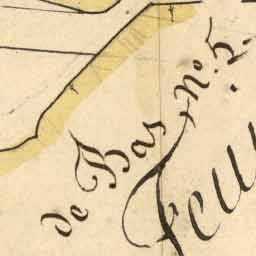 de Bas n.º 5.
Feu